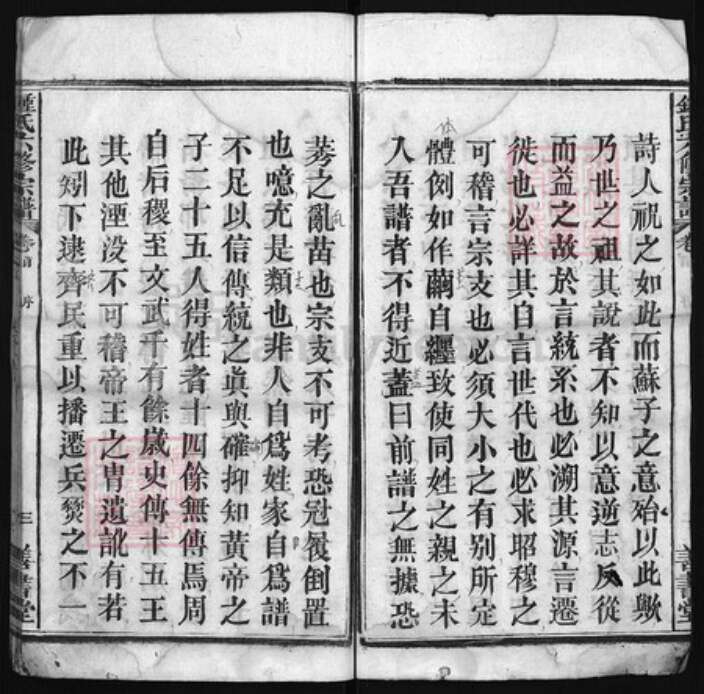 詩人祝之如此而蘇子之意殆以此歟
乃世之祖其說者不知以意逆志反從
而益之故於言統系也必溯其源言遷
徙也必詳其自言世代也必求昭穆之
可稽言宗支也必須大小之有别所定
體例如作繭自纒致使同姓之親之未
入吾譜者不得近葢曰前譜之無據恐
莠之亂苗也宗支不可考恐冠履倒置
也噫充是類也非人自爲姓家自爲譜
不足以信傳統之眞與確抑知黄帝之
子二十五人得姓者十四餘無傳焉周
自后稷至文武千有餘歲史傳十五王
其他湮没不可稽帝王之胄遺訛有若
此矧下逮齊民重以播遷兵燹之不一
鍾氏六修宗譜
卷首
序
三
善書堂